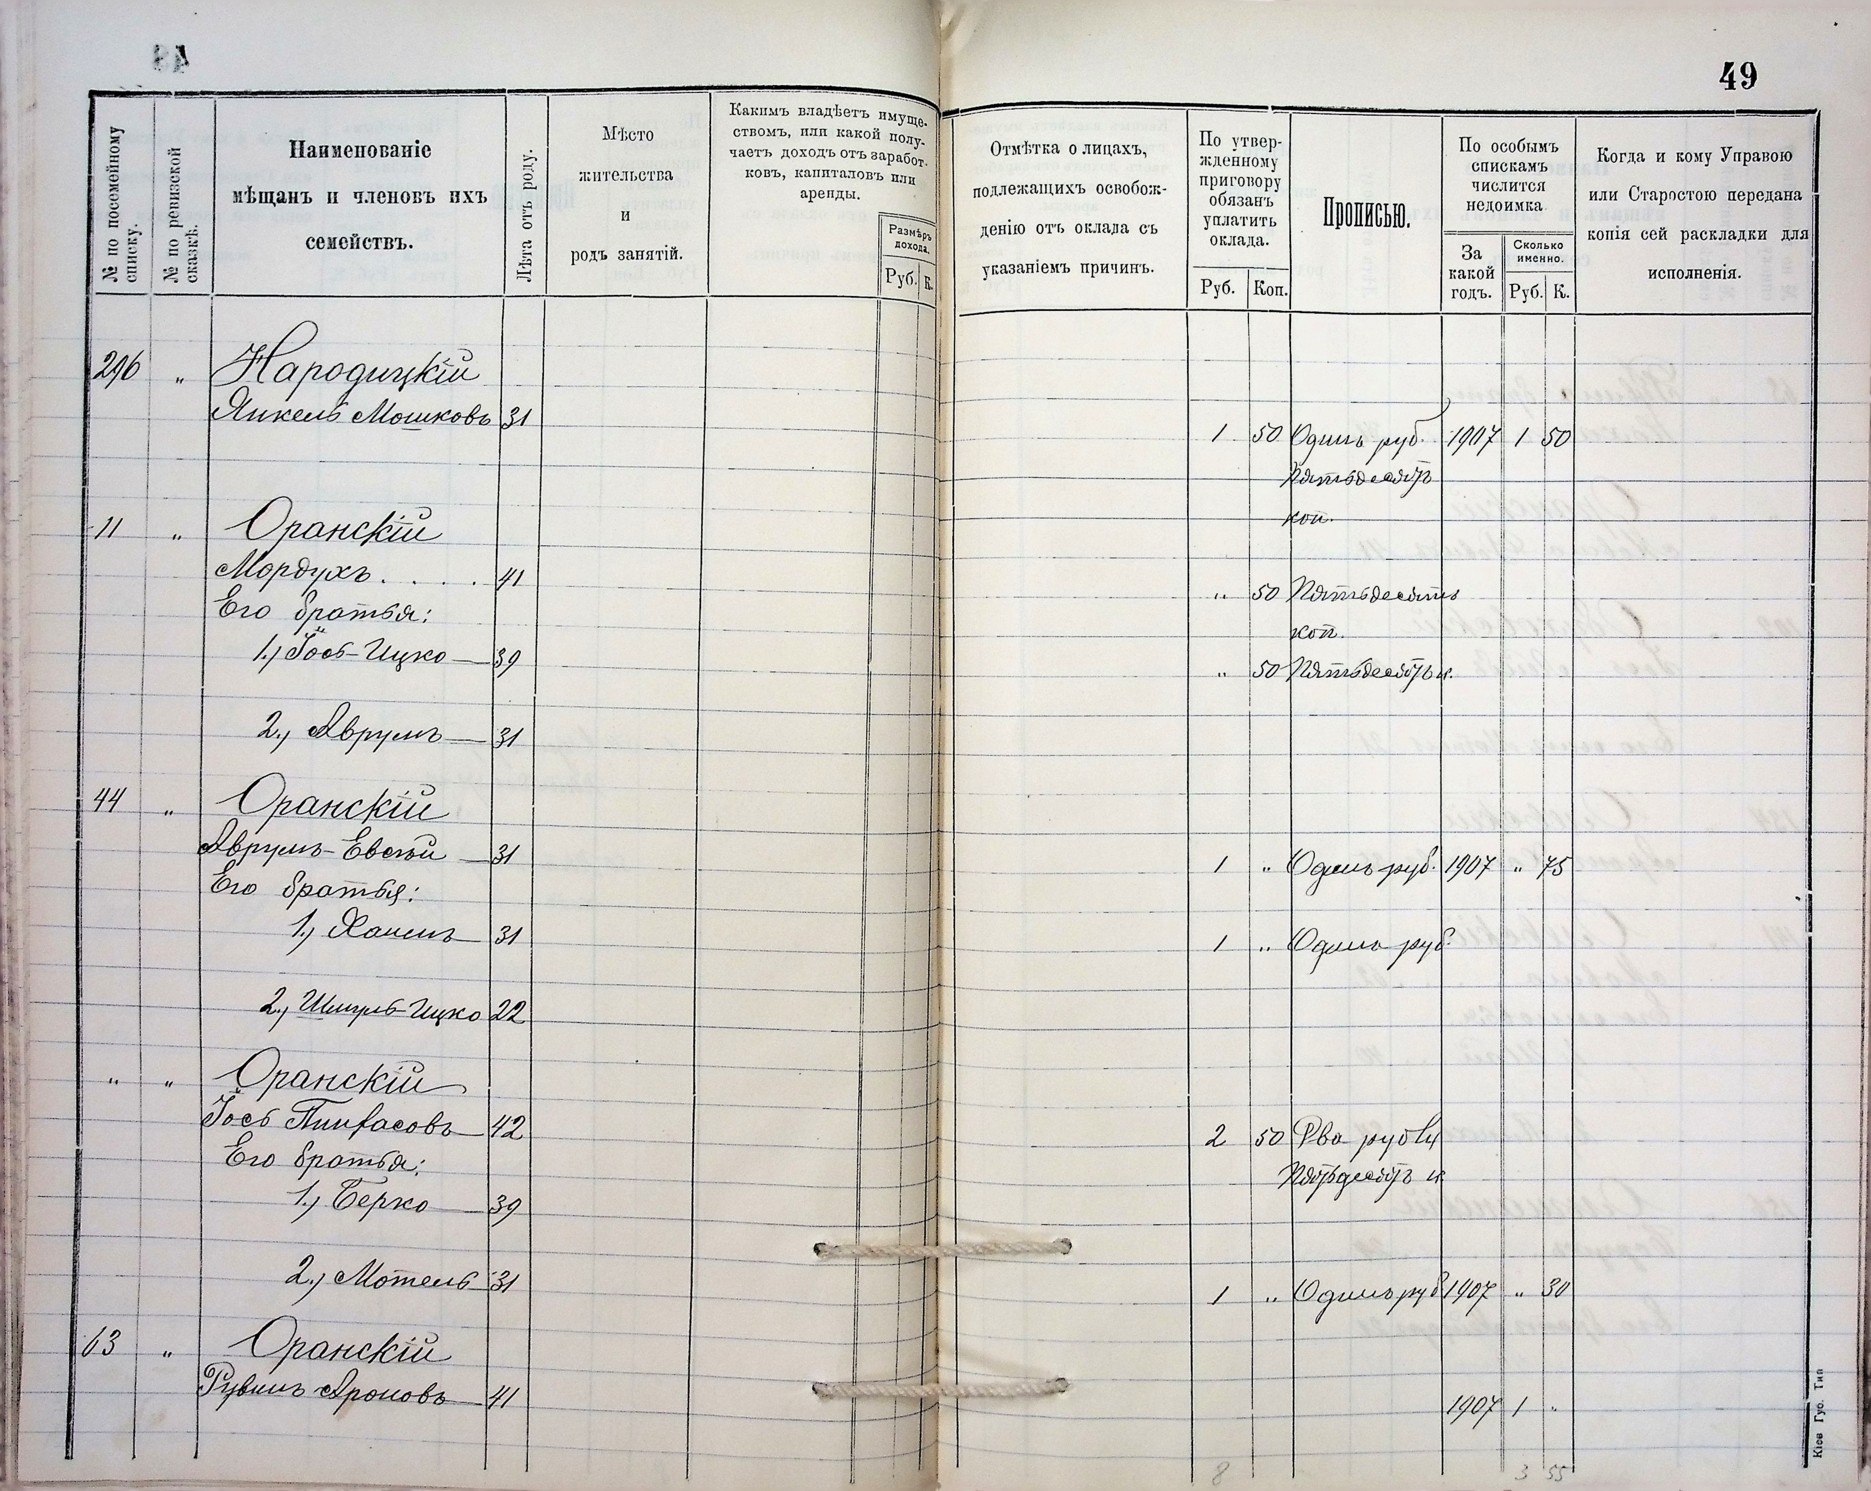 49
№ по посемейному списку.
№ по ревизской сказкѣ.
Наименованіе
мѣщанъ и членовъ ихъ
семействъ.
Лѣта отъ роду.
Мѣсто
жительства
и
родъ занятій.
Какимъ владѣетъ имуще-
ствомъ, или какой полу-
чаетъ доходъ отъ заработ-
ковъ, капиталовъ или
аренды.
Размѣръ
дохода.
Руб. К.
Отмѣтка о лицахъ,
подлежащихъ освобож-
денію отъ оклада съ
указаніемъ причинъ.
По утвер-
жденному
приговору
обязанъ
уплатить
оклада.
Руб. Коп.
Прописью.
По особымъ
спискамъ
числится
недоимка
За
какой
годъ.
Сколько
именно.
Руб. К.
Когда и кому Управою
или Старостою передана
копія сей раскладки для
исполненія.
296 „ Народицкій
Янкель Мошковъ 31 1 50 Одинъ руб. 1907 1 50
Пятьдесятъ
коп.
11 „ Оранскій
Мордухъ . . . . 41 „ 50 Пятьдесятъ
Его братья: коп.
1.) Іось-Ицко 39 „ 50 Пятьдесятъ к.
2.) Аврумъ 31
44 „ Оранскій
Аврумъ-Евсѣй 31 1 „ Одинъ руб. 1907 „ 75
Его братья:
1.) Хаимъ 31 1 „ Одинъ руб.
2.) Шмуль-Ицко 22
„ „ Оранскій
Іось Пинхасовъ 42 2 50 Два рубля
Его братья: Пятьдесятъ к
1.) Берко 39
2.) Мотель 31 1 „ Одинъ руб 1907 „ 30
63 „ Оранскій
Рувинъ Ароновъ 41 1907 1 „
8 3 55
Кіев Губ. Тип